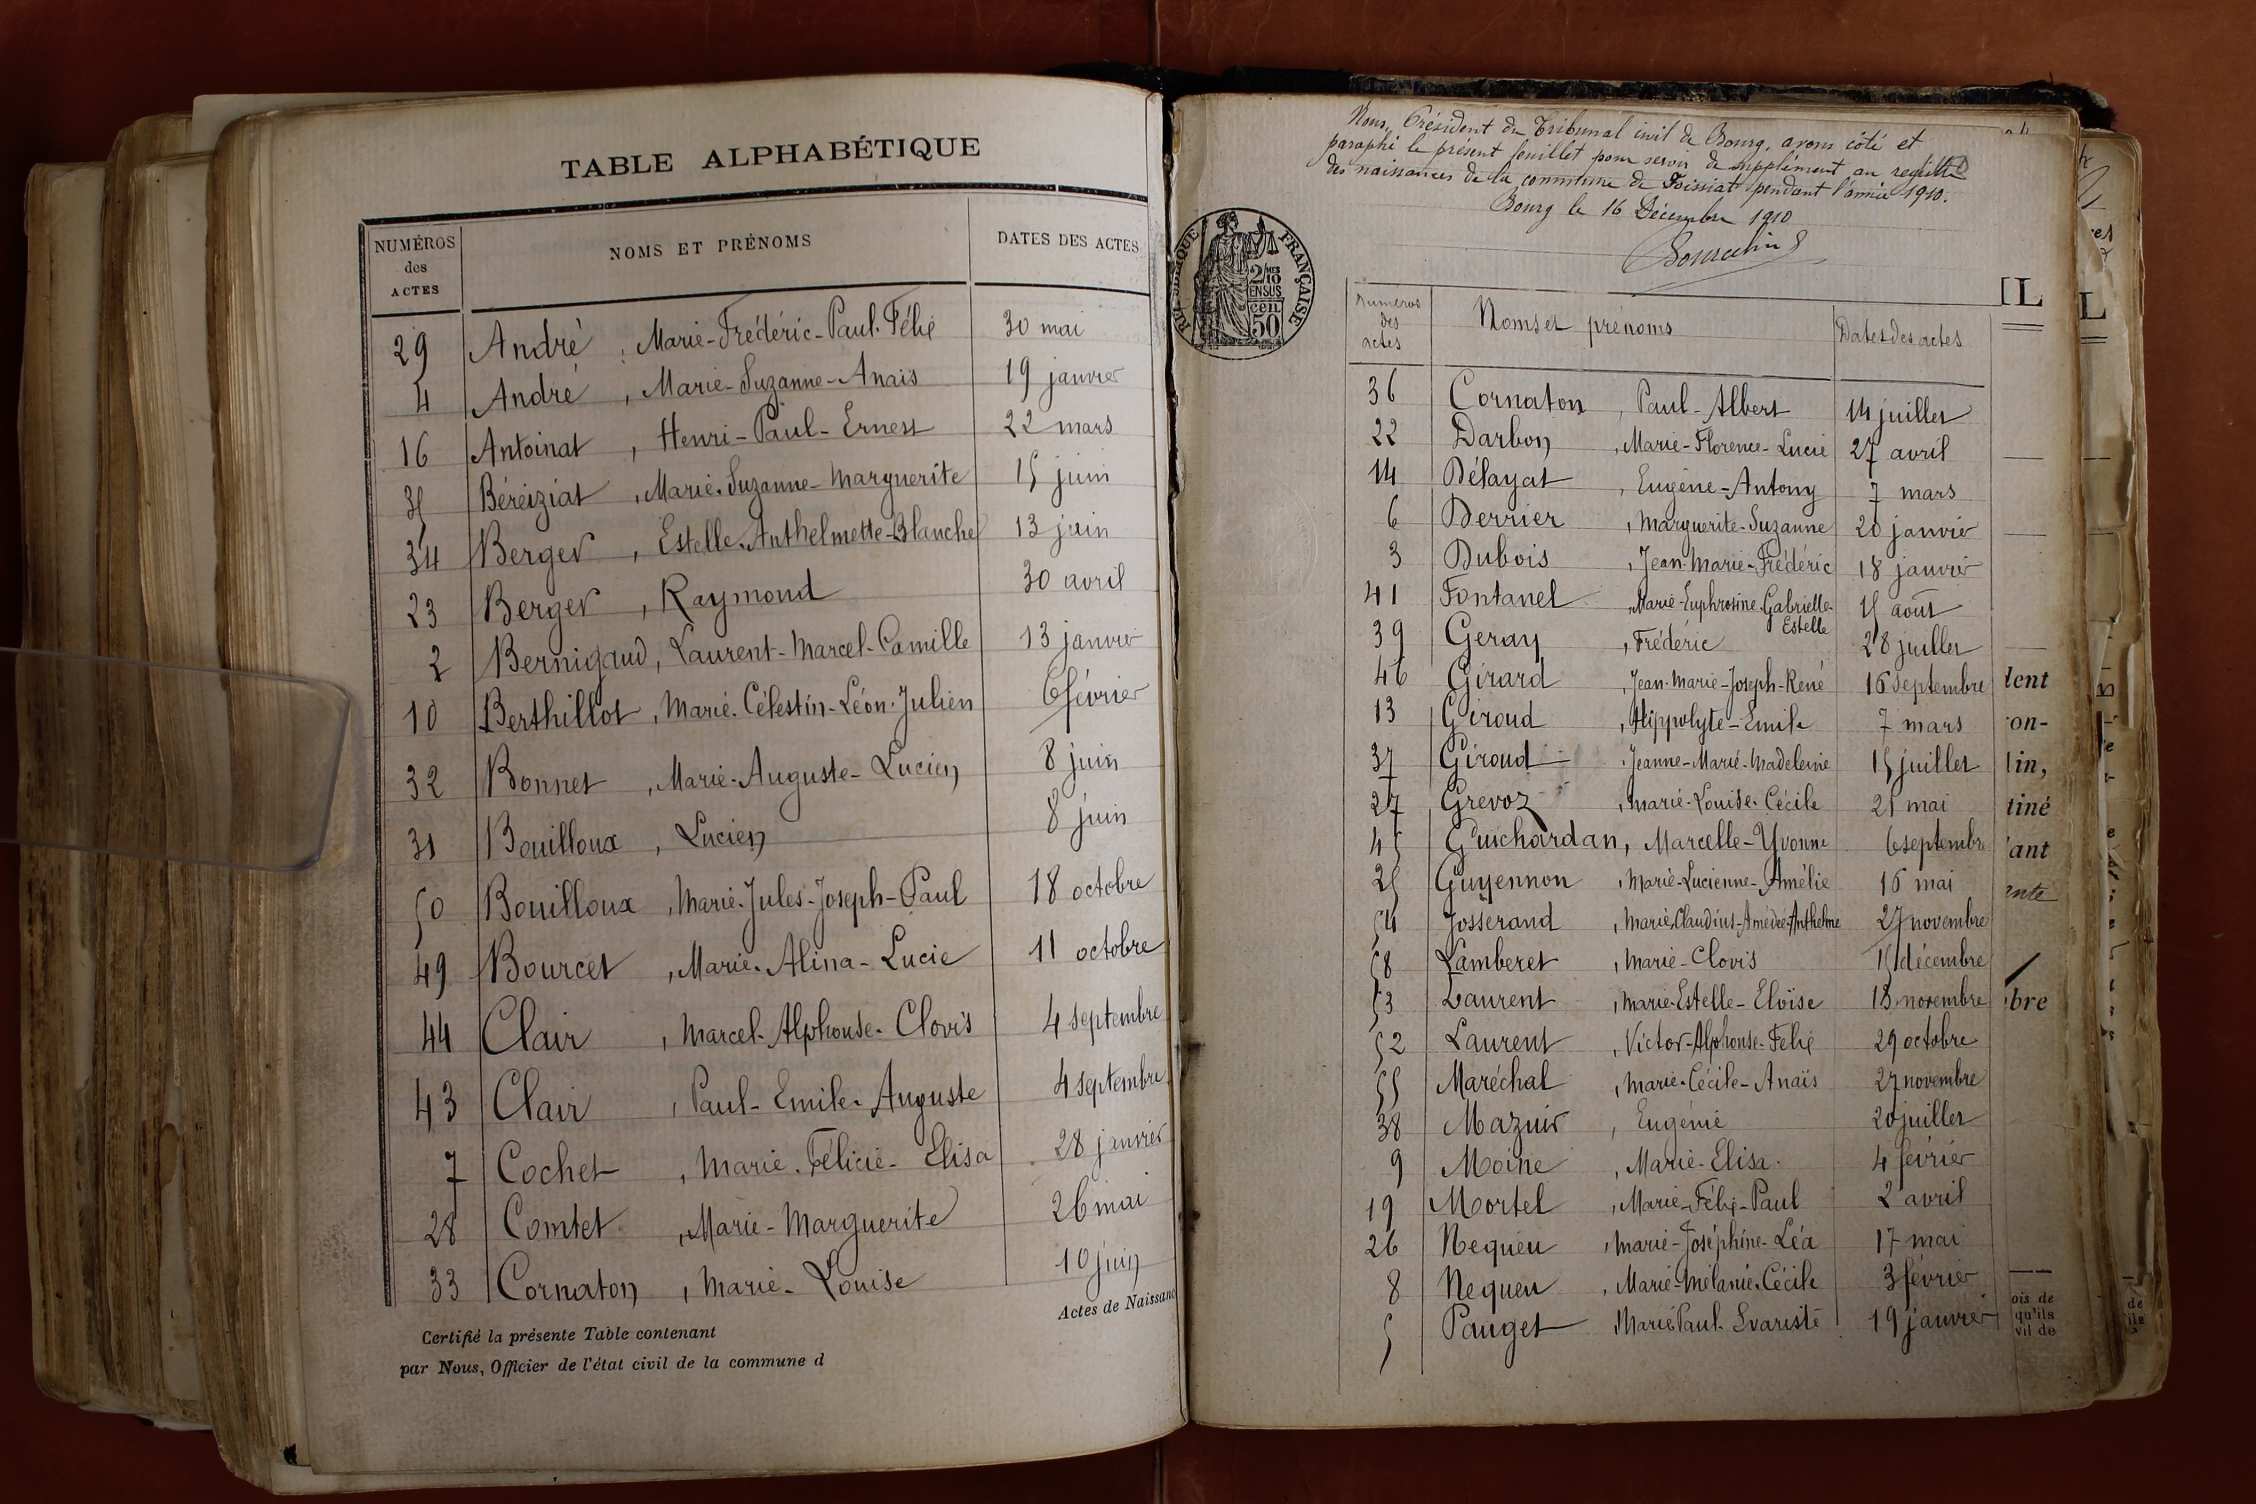 TABLE ALPHABÉTIQUE
NUMÉROS des ACTES NOMS ET PRÉNOMS DATES DES ACTES
29 André, Marie-Frédéric-Paul-Félix 30 mai
4 André, Marie-Suzanne-Anais 19 janvier
16 Antoinat, Henri-Paul-Ernest 22 mars
35 Béréiziat, Marie-Suzanne-Marguerite 15 juin
34 Berger, Estelle-Anthelmette-Blanche 13 juin
23 Berger, Raymond 30 avril
2 Bernigaud, Laurent-Marcel-Camille 13 janvier
10 Berthillot, Marie-Célestin-Léon-Julien 6 février
32 Bonnet, Marie-Auguste-Lucien 8 juin
31 Bouilloux, Lucien 8 juin
50 Bouilloux, Marie-Jules-Joseph-Paul 18 octobre
49 Bourcet, Marie-Alina-Lucie 11 octobre
44 Clair, Marcel-Alphonse-Clovis 4 septembre
43 Clair, Paul-Emile-Auguste 4 septembre
7 Cochet, Marie-Félicie-Elisa 28 janvier
28 Comtet, Marie-Marguerite 26 mai
33 Cornaton, Marie-Louise 10 juin
Actes de Naissanc
Certifié la présente Table contenant
par Nous, Officier de l'état civil de la commune d
Nous, Président du Tribunal civil de Bourg, avons côté et
paraphé le présent feuillet pour servir de supplément au registre
des naissances de la commune de Foissiat pendant l'année 1910.
Bourg le 16 Décembre 1910
RÉPUBLIQUE FRANÇAISE
2/10 EN SUS
50 cen
Numéros des actes Noms et prénoms Dates des actes
36 Cornaton, Paul-Albert 14 juillet
22 Darbon, Marie-Florence-Lucie 27 avril
14 Délayat, Eugène-Antony 7 mars
6 Derrier, Marguerite-Suzanne 20 janvier
3 Dubois, Jean-Marie-Frédéric 18 janvier
41 Fontanel, Marie-Euphrosine-Gabrielle-Estelle 15 août
39 Geray, Frédéric 28 juillet
46 Girard, Jean-Marie-Joseph-René 16 septembre
13 Giroud, Hippolyte-Emile 7 mars
37 Giroud, Jeanne-Marie-Madeleine 15 juillet
27 Grevoz, Marie-Louise-Cécile 21 mai
45 Guichardan, Marcelle-Yvonne 6 septembre
25 Guyennon, Marie-Lucienne-Amélie 16 mai
54 Josserand, Marie-Claudius-Amédée-Anthelme 27 novembre
58 Lamberet, Marie-Clovis 15 décembre
53 Laurent, Marie-Estelle-Eloïse 13 novembre
52 Laurent, Victor-Alphonse-Félix 29 octobre
55 Maréchal, Marie-Cécile-Anaïs 27 novembre
38 Mazuir, Eugénie 20 juillet
9 Moine, Marie-Elisa 4 février
19 Mortel, Marie-Félix-Paul 2 avril
26 Nequeu, Marie-Joséphine-Léa 17 mai
8 Nequeu, Marie-Mélanie-Cécile 3 février
5 Pauget Marie Paul-Evariste 19 janvier
IL
dent
on-
lin,
tiné
ant
ente
bre
ois de
qu'ils
vil de
L